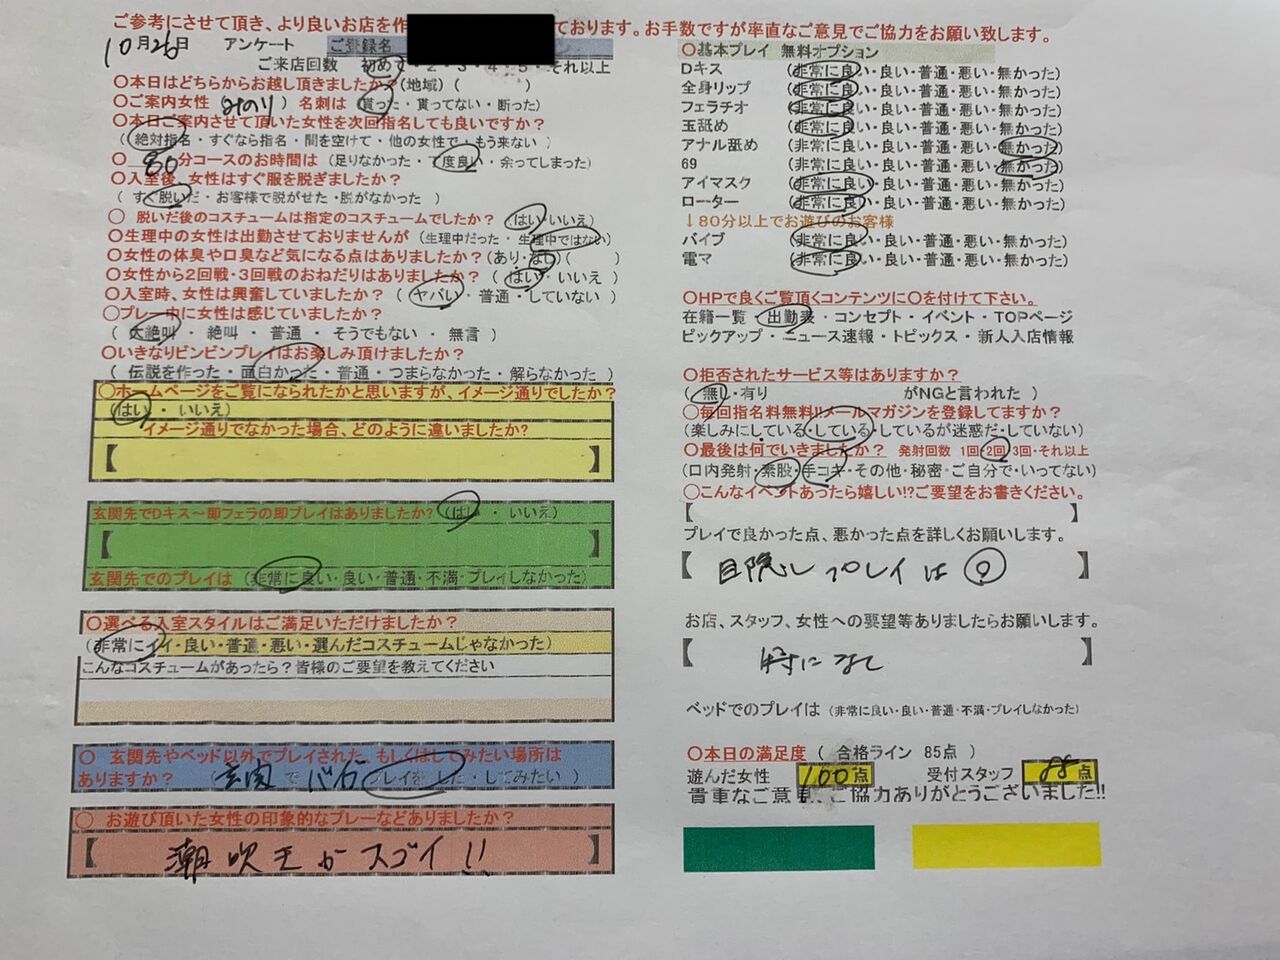 ご参考にさせて頂き、より良いお店を作 ております。お手数ですが率直なご意見でご協力をお願い致します。
10月26日 アンケート ご登録名
ご来店回数 初めて・2・3・4・5・それ以上
〇本日はどちらからお越し頂きましたか?(地域) ( )
〇ご案内女性 みのり ) 名刺は (貰った・貰ってない・断った)
〇本日ご案内させて頂いた女性を次回指名しても良いですか?
(絶対指名・すぐなら指名・間を空けて・他の女性で・もう来ない)
〇 80分コースのお時間は (足りなかった・丁度良い・余ってしまった)
〇入室後、女性はすぐ服を脱ぎましたか?
(すぐ脱いだ・お客様で脱がせた・脱がなかった)
〇 脱いだ後のコスチュームは指定のコスチュームでしたか? (はい・いいえ)
〇生理中の女性は出勤させておりませんが (生理中だった・生理中ではない)
〇女性の体臭や口臭など気になる点はありましたか?(あり・なし)( )
〇女性から2回戦・3回戦のおねだりはありましたか? (はい・いいえ)
〇入室時、女性は興奮していましたか? (ヤバい・普通・していない)
〇プレー中に女性は感じていましたか?
(大絶叫・絶叫・普通・そうでもない・無言)
〇いきなりビンビンプレイはお楽しみ頂けましたか?
(伝説を作った・面白かった・普通・つまらなかった・解らなかった)
〇ホームページをご覧になられたかと思いますが、イメージ通りでしたか?
(はい・いいえ)
イメージ通りでなかった場合、どのように違いましたか?
【 】
玄関先でDキス～即フェラの即プレイはありましたか? (はい・いいえ)
【 】
玄関先でのプレイは (非常に良い・良い・普通・不満・プレイしなかった)
〇選べる入室スタイルはご満足いただけましたか?
(非常にイイ・良い・普通・悪い・選んだコスチュームじゃなかった)
こんなコスチュームがあったら?皆様のご要望を教えてください
〇 玄関先やベッド以外でプレイされた、もしくはしてみたい場所は
ありますか? (玄関で プレイをした・してみたい)
〇 お遊び頂いた女性の印象的なプレーなどありましたか?
【 潮吹 がスゴイ!! 】
〇基本プレイ 無料オプション
Dキス (非常に良い・良い・普通・悪い・無かった)
全身リップ (非常に良い・良い・普通・悪い・無かった)
フェラチオ (非常に良い・良い・普通・悪い・無かった)
玉舐め (非常に良い・良い・普通・悪い・無かった)
アナル舐め (非常に良い・良い・普通・悪い・無かった)
69 (非常に良い・良い・普通・悪い・無かった)
アイマスク (非常に良い・良い・普通・悪い・無かった)
ローター (非常に良い・良い・普通・悪い・無かった)
↓80分以上でお遊びのお客様
バイブ (非常に良い・良い・普通・悪い・無かった)
電マ (非常に良い・良い・普通・悪い・無かった)
〇HPで良くご覧頂くコンテンツに〇を付けて下さい。
在籍一覧・出勤表・コンセプト・イベント・TOPページ
ピックアップ・ニュース速報・トピックス・新人入店情報
〇拒否されたサービス等はありますか?
(無し・有り がNGと言われた )
〇毎回指名料無料!!メールマガジンを登録してますか?
(楽しみにしている・している・しているが迷惑だ・していない)
〇最後は何でいきましたか? 発射回数 1回・2回・3回・それ以上
(口内発射・素股・手コキ・その他・秘密・ご自分で・いってない)
〇こんなイベントあったら嬉しい!?ご要望をお書きください。
【 】
プレイで良かった点、悪かった点を詳しくお願いします。
【 目隠しプレイは◎ 】
お店、スタッフ、女性への要望等ありましたらお願いします。
【 特になし 】
ベッドでのプレイは (非常に良い・良い・普通・不満・プレイしなかった)
〇本日の満足度 ( 合格ライン 85点 )
遊んだ女性 100点 受付スタッフ 88点
貴重なご意見、ご協力ありがとうございました!!